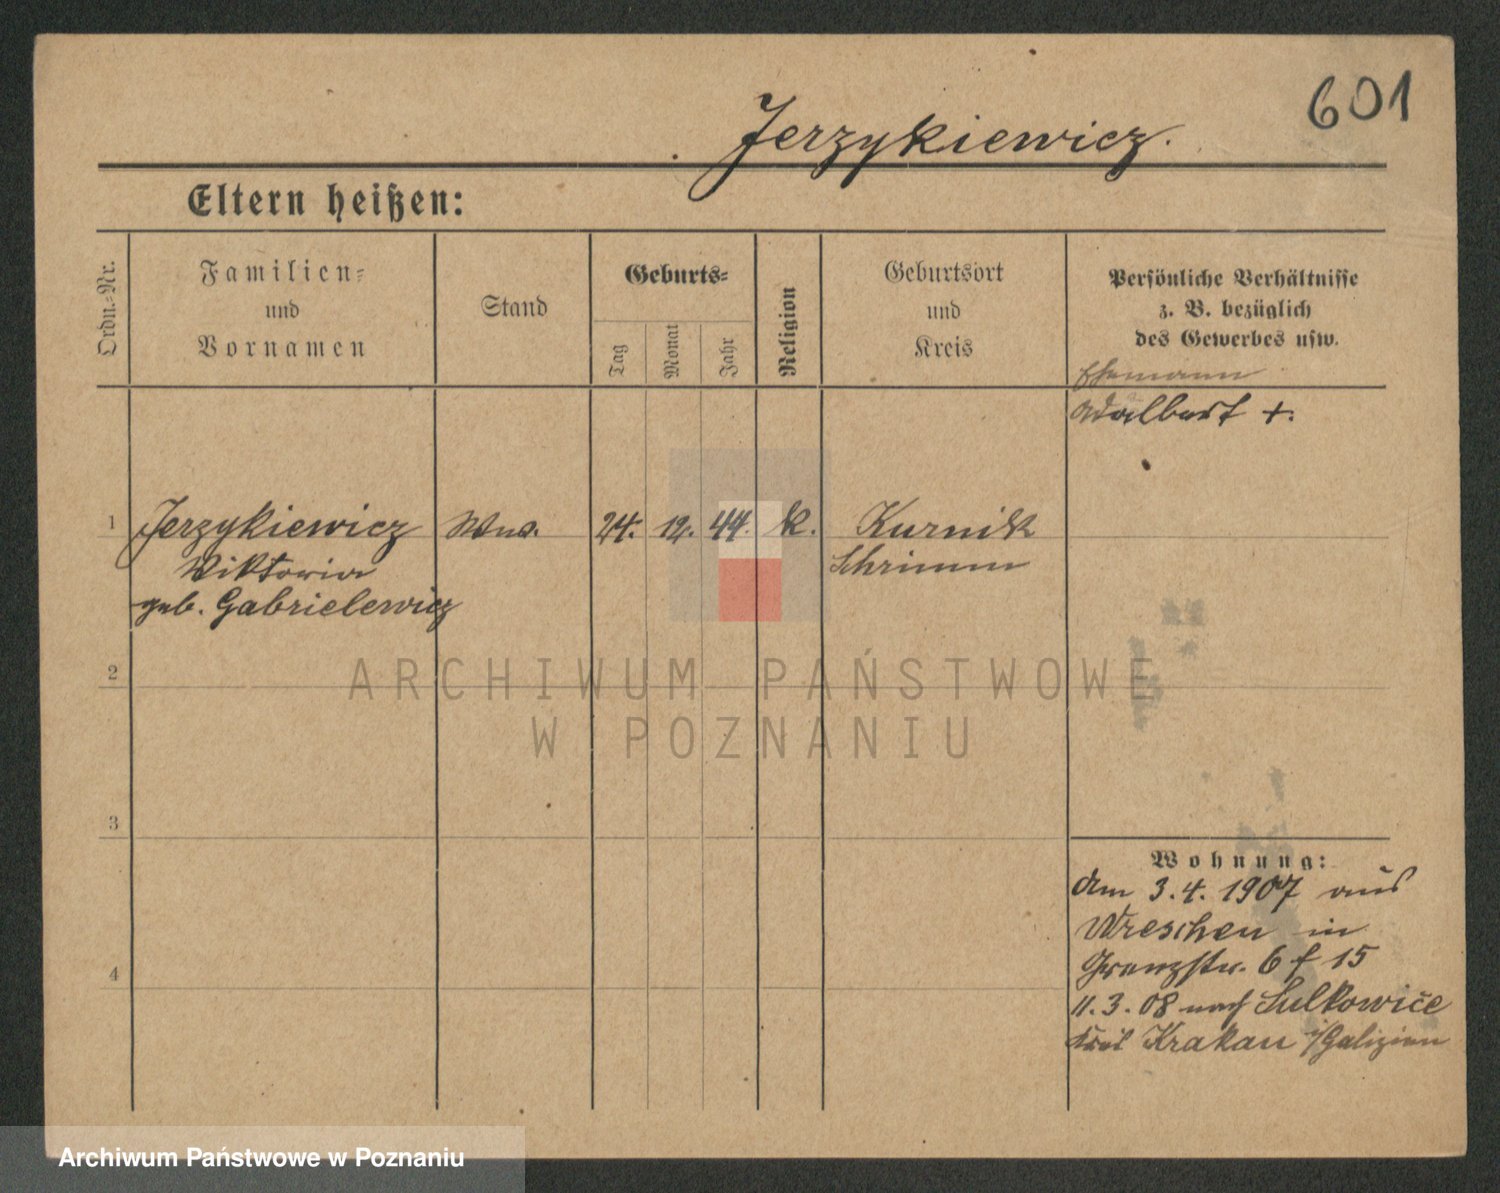 601
Jerzykiewicz.
Eltern heißen:
Ordn.-Nr.
Familien-
und
Vornamen
Stand
Geburts-
Tag
Monat
Jahr
Religion
Geburtsort
und
Kreis
Persönliche Verhältnisse
z. B. bezüglich
des Gewerbes usw.
Ehemann
Adalbert +.
1 Jerzykiewicz Wwe. 24. 12. 44. k. Kurnik
Viktoria Schrimm
geb. Gabrielewicz
2
ARCHIWUM PAŃSTWOWE
W POZNANIU
3
Wohnung:
den 3.4.1907 aus
Wreschen in
Grenzstr. 6 f 15
4
11.3.08 nach Sulkowice
Kreis Krakau i/Galizien
Archiwum Państwowe w Poznaniu